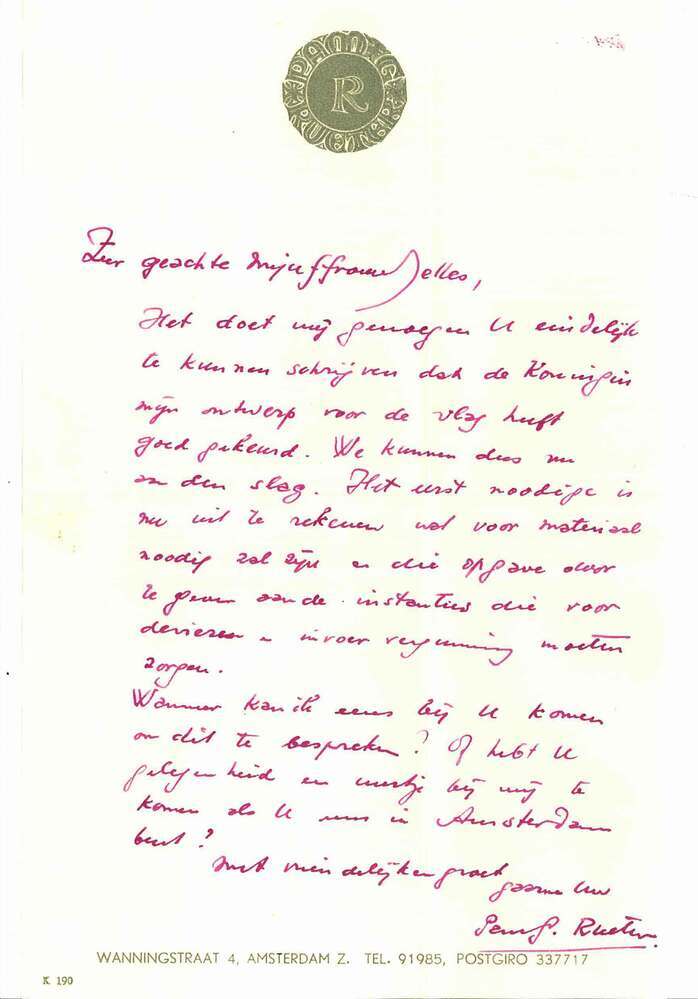 PAM G
R
RUETER
Zeer geachte Mejuffrouw Jelles,
Het doet mij genoegen U eindelijk
te kunnen schrijven dat de Koningin
mijn ontwerp voor de vlag heeft
goed gekeurd. We kunnen dus nu
aan den slag. Het eerst noodige is
nu uit te rekenen wat voor materiaal
noodig zal zijn en die opgave door
te geven aan de instanties die voor
deviezen en invoer vergunning moeten
zorgen.
Wanneer kan ik eens bij U komen
om dit te bespreken? Of hebt U
gelegenheid en uurtje bij mij te
komen als U eens in Amsterdam
bent?
Met vriendelijken groet
gaarne Uw
Pam G. Rueter.
WANNINGSTRAAT 4, AMSTERDAM Z. TEL. 91985, POSTGIRO 337717
K 190